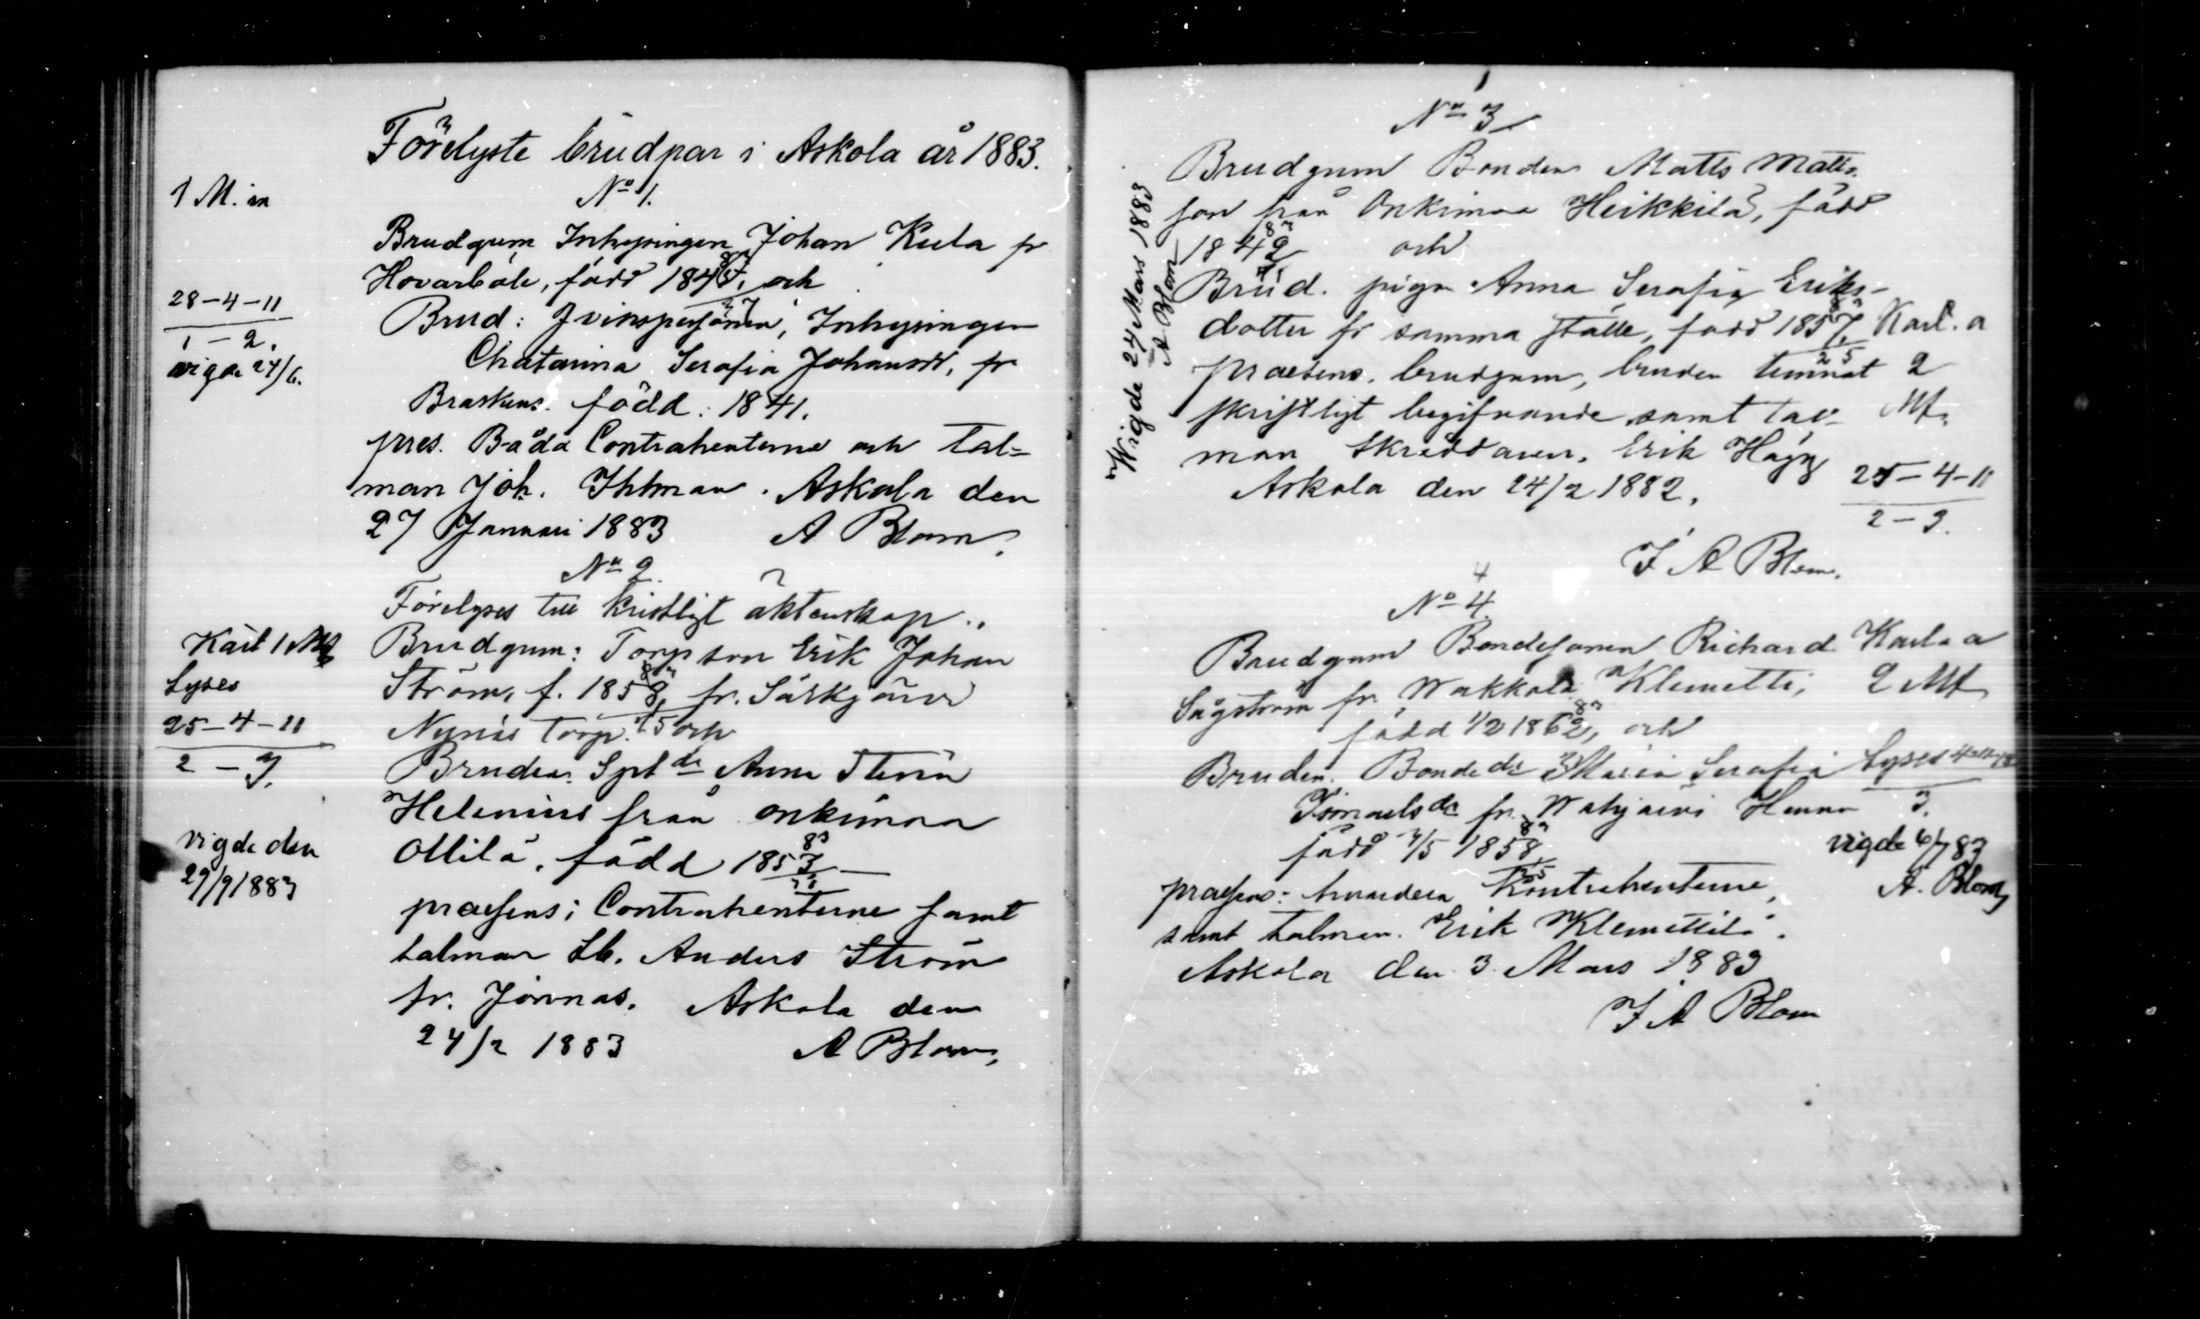 Förelyste brudpar i Askola år 1883.
1 M. in
No 1.
Brudgum Inhysingen Johan Kula fr
Hovarböle, född 184 och
28-4-11
1-2.
vigde 24/6.
Brud: Qvinspersonen, Inhysingen
Chatarina Serafia Johansdr, fr
Braskens. född: 1841.
pres. Båda Contrahenterne och Tal=
man Joh. Ihlman. Askola den
27 Januari 1883 A Blom.
No 2.
Förelyses till kristligt äktenskap.
Karl 1 M
Lyses
25-4-11
2-3.
vigde den
29/9 1883
Brudgum: Torpson Erik Johan
Ström, f. 1858, fr. Särkjärvi
Nynäs Torp. och
Bruden: Anna Stina
Helenius från Onkimaa
Ollila, född 1853 83
praesens: Contrahenterne samt
talman Lb. Anders Ström
fr. Jönnas. Askola den
24/2 1883 A Blom,
No 3
Wigde 24 Mars 1883
A Blom
Brudgum Bonden Matts Matts-
son från Onkimaa Heikkilä, född
1842 och
Brud. pigan Anna Serafia Eriks-
dotter fr samma ställe, född 1857. Karl. a
praesens. brudgum, bruden lemnat 2
skriftligt begifvande samt tal- Mk.
man Skräddaren. Erik Hägg
Askola den 24/2 1882.
25-4-11
2-3.
F A Blom.
4
No 4.
Brudgum Bondesonen Richard Karl a
Sågström fr. Wakkola Klemetti, 2 Mk
född 1/2 1862, och
Bruden. Bonde dr Maria Serafia Lyses
Ismaels dr fr. Wahijärvi Henna 3.
född /5 1858 vigde 6/7 83
praesens: Kontrahenterne, A. Blom
samt talman. Erik Klemettilä.
Askola den 3 Mars 1883
F A Blom